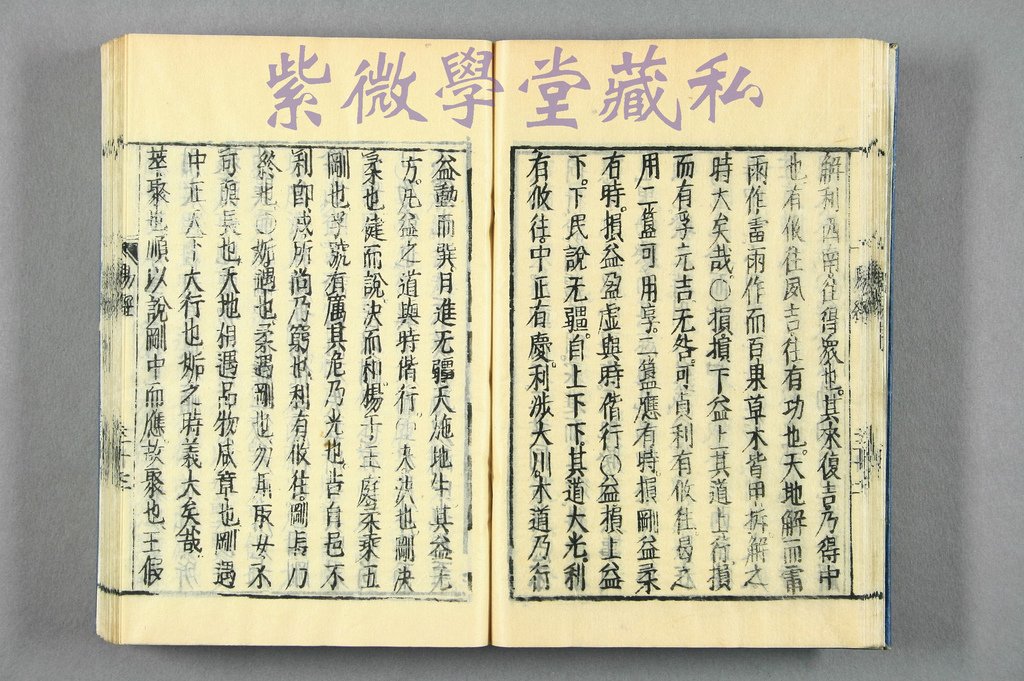 紫微學堂藏私
解利西南往得眾也。其來復吉乃得中
也有攸往夙吉往有功也。天地解而雷
雨作雷雨作而百果草木皆甲拆解之
時大矣哉。〇損。損下益上其道上行損
而有孚元吉无咎。可貞利有攸往曷之
用二簋可用享。二簋應有時。損剛益柔
有時。損益盈虛與時偕行〇益損上益
下。下民說无疆。自上下下其道大光。利
有攸往。中正有慶。利涉大川。木道乃行
益動而巽月進无疆天施地生其益无
方。凡益之道與時偕行。夬決也剛決
柔也健而說決而和揚于王庭柔乘五
剛也孚號有厲其危乃光也。告自邑不
利即戎所尚乃窮也利有攸往。剛長乃
終也〇姤遇也柔遇剛也勿用取女不
可與長也。天地相遇品物咸章也剛遇
中正天下大行也姤之時義大矣哉
萃聚也順以說剛中而應故聚也王假
易經